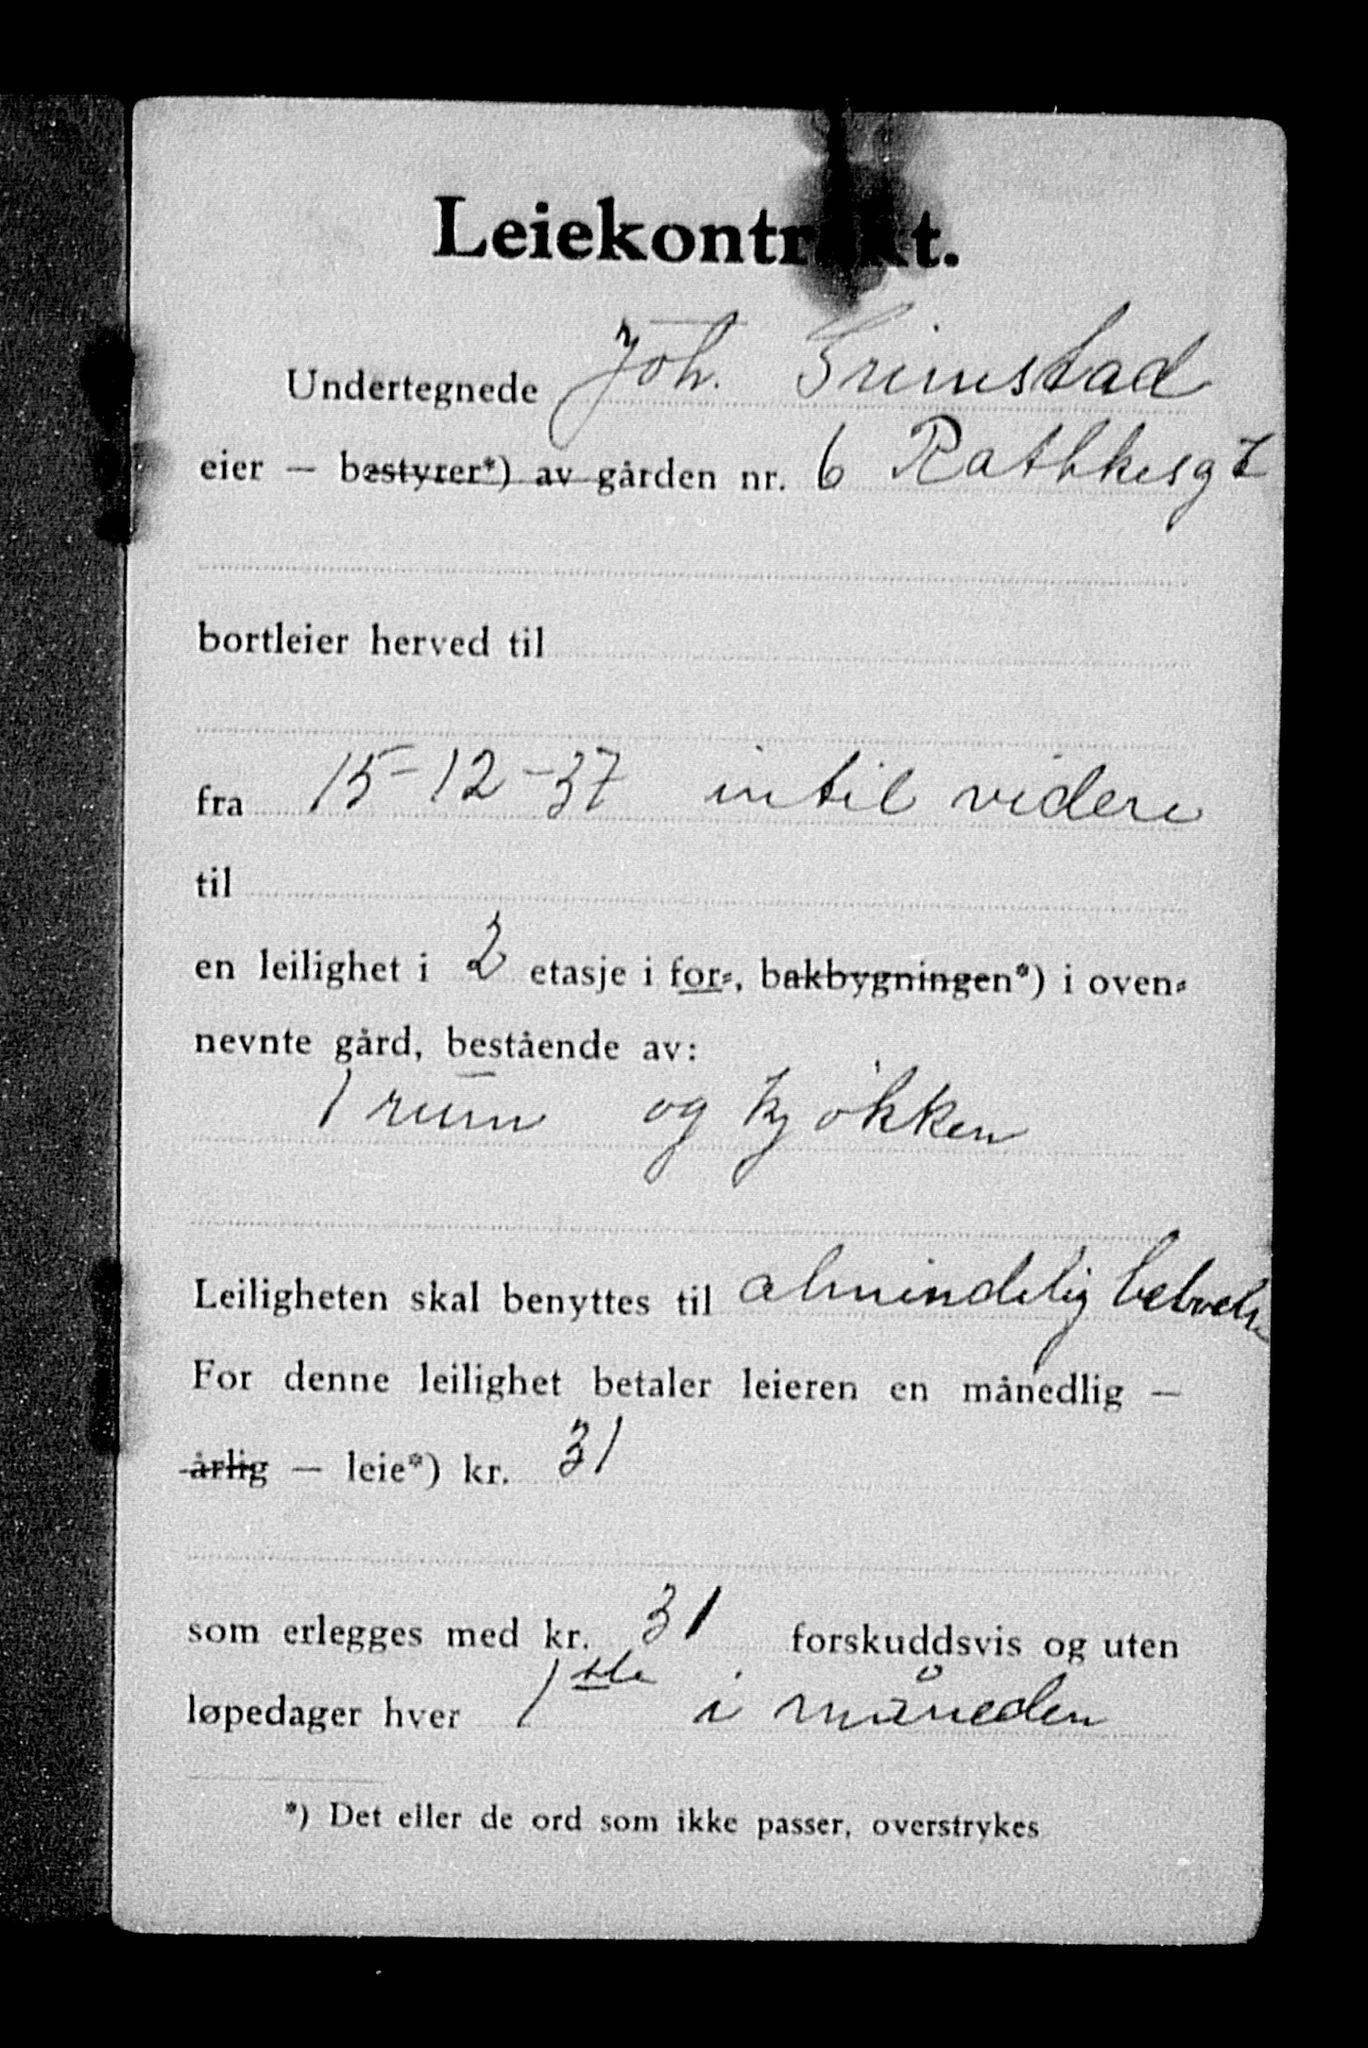 Leiekontrakt.
Undertegnede Joh. Grimstad
eier — bestyrer*) av gården nr. 6 Rathkesgt
bortleier herved til
fra 15-12-37 intil videre
til
en leilighet i 2 etasje i for-, bakbygningen*) i oven-
nevnte gård, bestående av:
1 rum og kjøkken
Leiligheten skal benyttes til almindelig
For denne leilighet betaler leieren en månedlig —
årlig — leie*) kr. 31
som erlegges med kr. 31 forskuddsvis og uten
løpedager hver 1ste i måneden
*) Det eller de ord som ikke passer, overstrykes